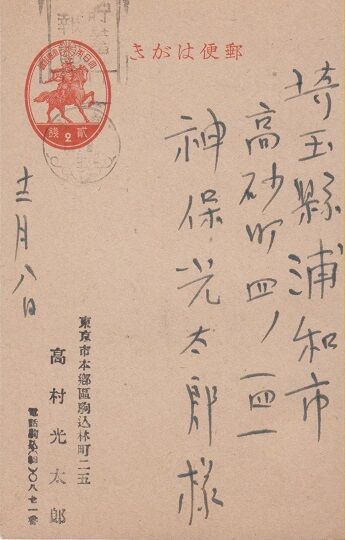 郵便はがき
大日本帝国郵便
貳 2 錢
埼玉縣浦和市
高砂町四ノ一四一
神保光太郎様
十二月八日
東京市本郷區駒込林町二五
高村光太郎